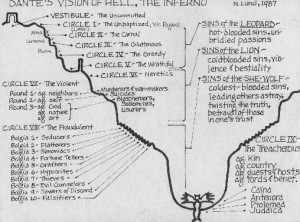 DANTE'S VISION OF HELL, THE INFERNO
N. Lund, 1987
VESTIBULE - The Uncommitted
CIRCLE I - The Unbaptized, Vir. Pagans
CIRCLE II - The Carnal
CIRCLE III - The Gluttonous
CIRCLE IV - The Greedy
CIRCLE V - The Wrathful
CIRCLE VI - Heretics
CIRCLE VII - The Violent
Round 1 - ag neighbors
Round 2 - ag self
Round 3 - ag God
ag nature
ag art
Murderers & war-makers
Suicides
Blasphemers,
Sodomites,
Usurers
CIRCLE VIII - The Fraudulent
Bolgia 1 - Seducers
Bolgia 2 - Flatterers
Bolgia 3 - Simoniacs
Bolgia 4 - Fortune Tellers
Bolgia 5 - Grafters
Bolgia 6 - Hypocrites
Bolgia 7 - Thieves
Bolgia 8 - Evil Counselors
Bolgia 9 - Sowers of Discord
Bolgia 10 - Falsifiers
SINS of the LEOPARD -
hot-blooded sins, un-
bridled passions
SINS of the LION -
coldblooded sins, vio-
lence & bestiality
SINS of the SHE-WOLF -
coldest-blooded sins,
leading others astray,
twisting the truth,
betrayal of those
in one's trust
CIRCLE IX -
The Treacherous
ag Kin
ag country
ag guests & hosts
ag lords & benef.
Caïna
Antenora
Ptolomea
Judaica